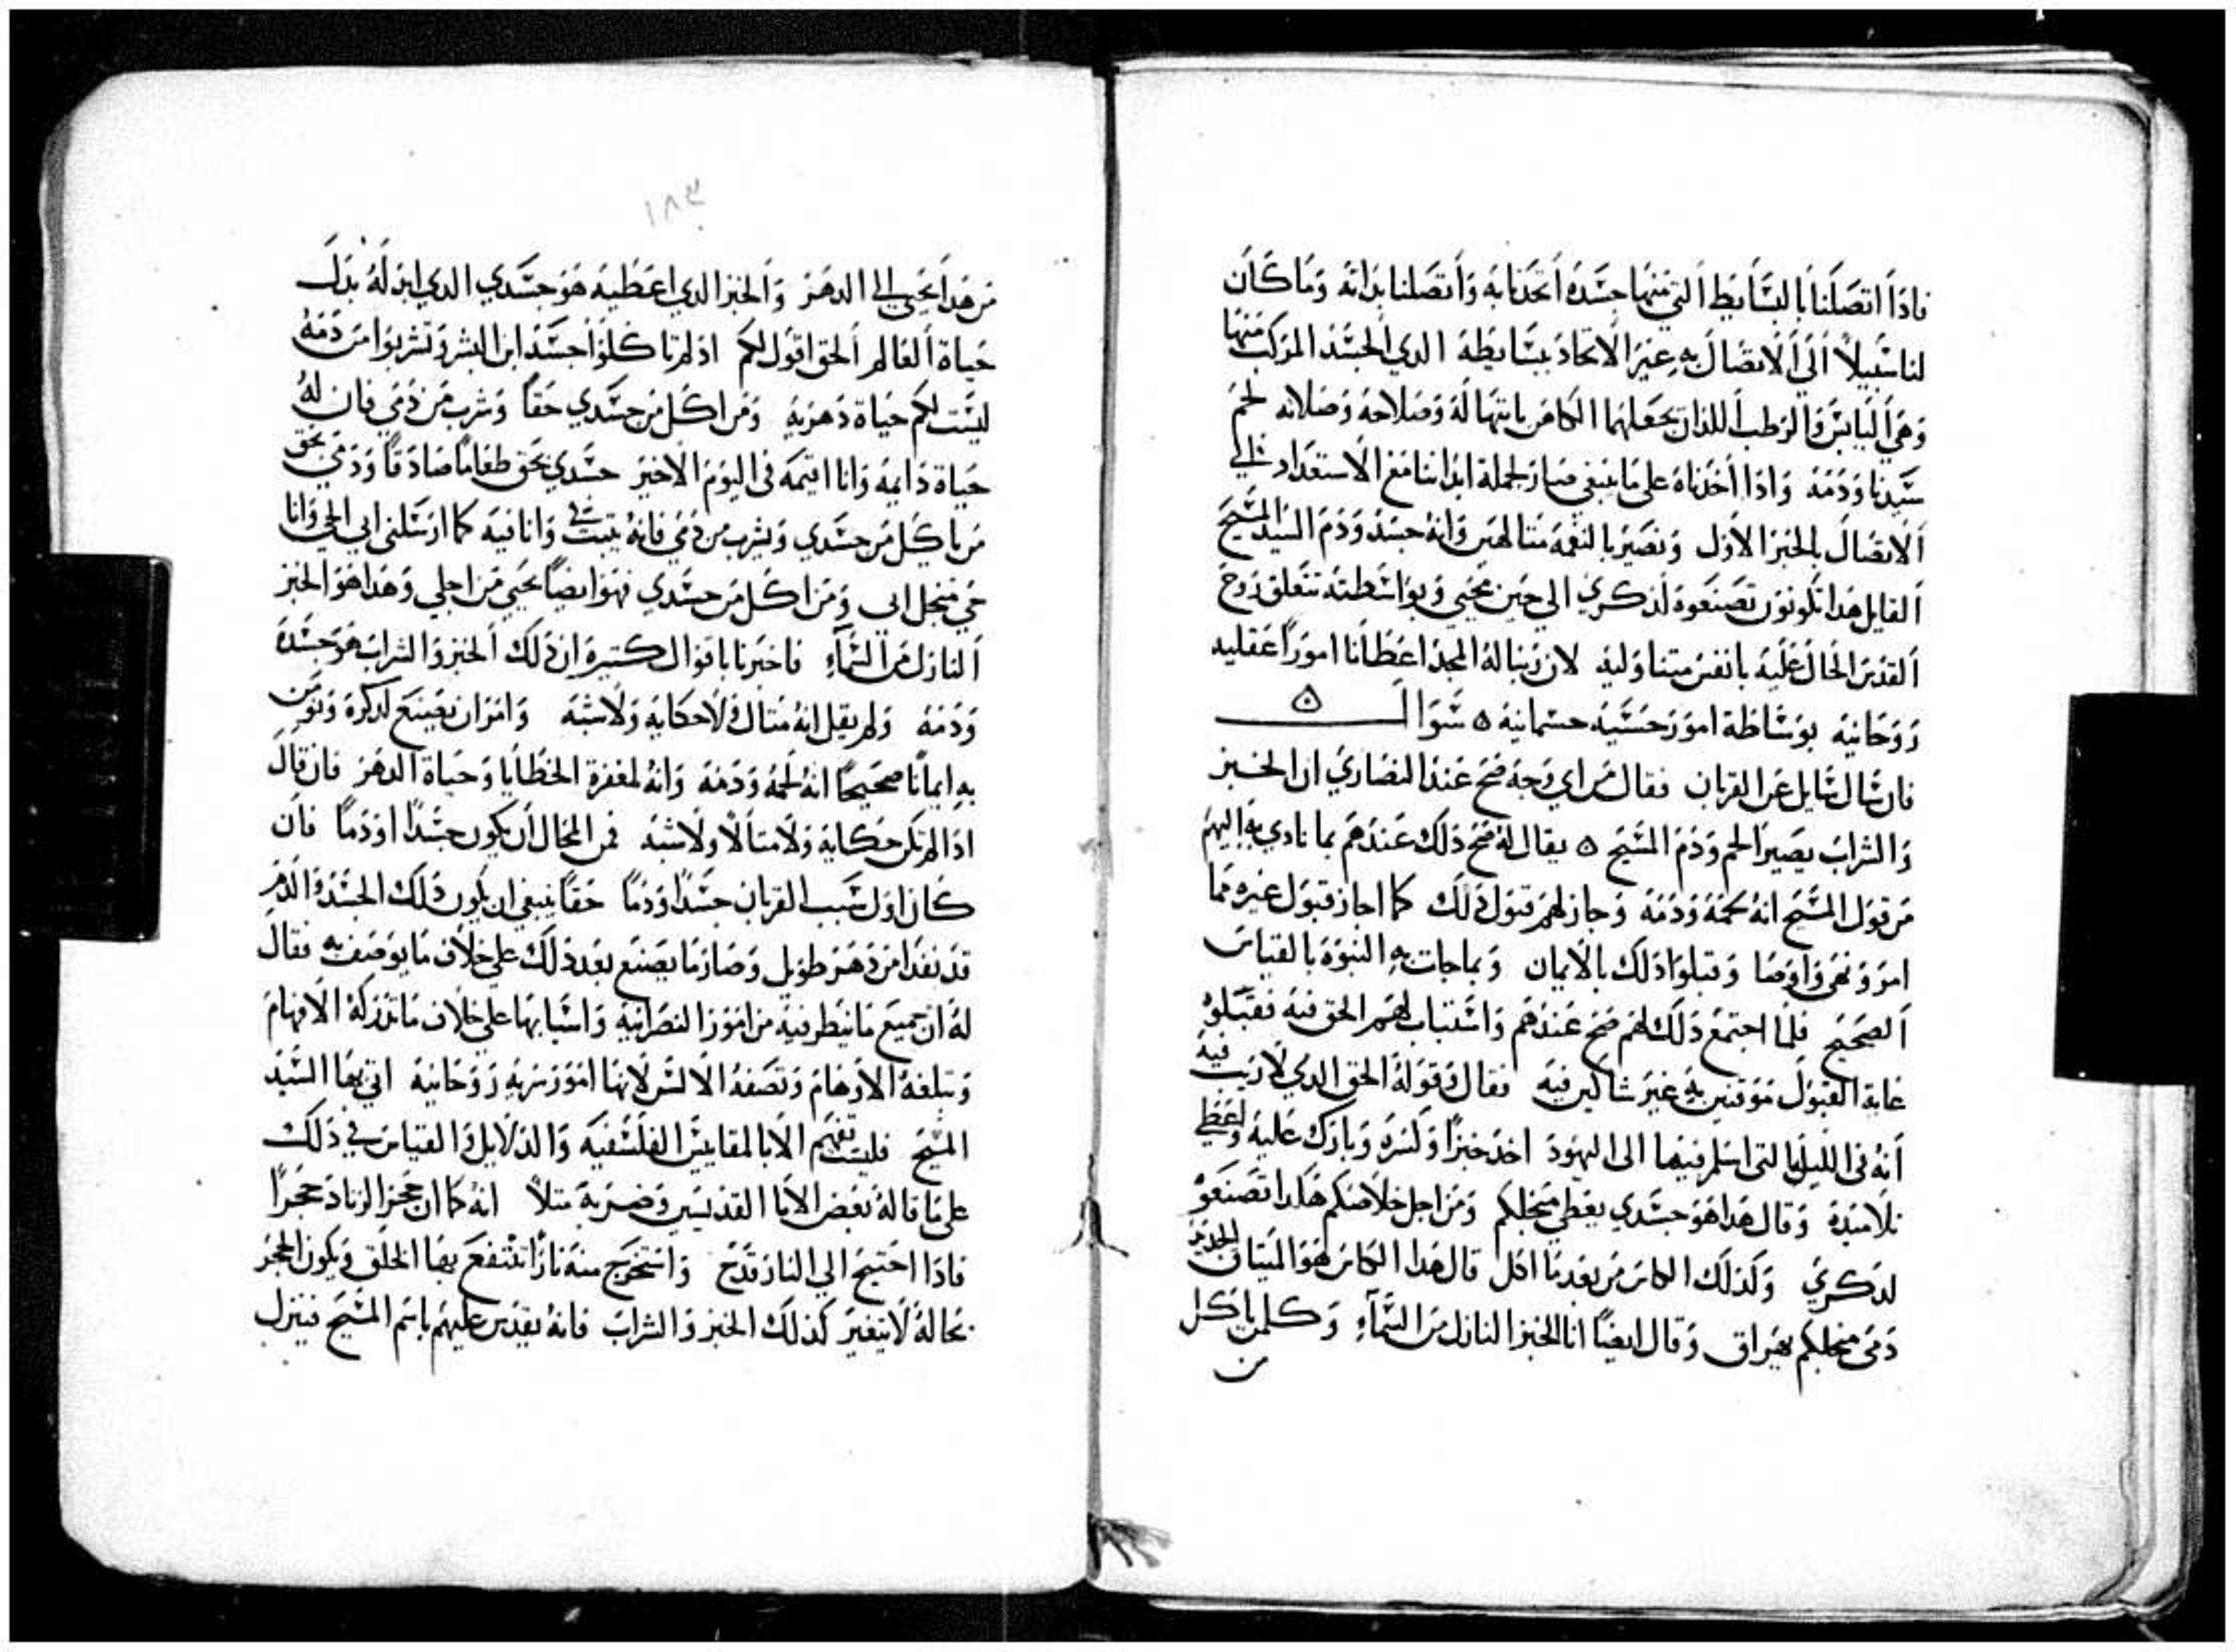 فاذا اتصلنا بالبسايط التي منها جسده اتحدنا به واتصلنا بذاته وما كان
لنا سبيلاً الي الاتصال به غير الاتحاد ببسايطه الدي الجسد المركب منها
وهي اليابس والرطب اللذان يجعلهما الكاهن بابتهاله وصلاحه وصلاته لحم
سيدنا ودمه واذا اخدناه علي ما ينبغي صار لجملة ابداننا مع الاستعداد الي
الاتصال بالخبز الاول ونصير بالنعمه متالهين وانه جسد ودم السيد المسيح
القايل هدا تكونون تصنعوه لدكري الي حين مجيي وبواسطته تتعلق روح
القدس الحال عليه بانفس متناوليه لان ربنا له المجد اعطانا امورًا عقليه
روحانيه بوساطة امور حسيه جسمانيه ه سوال ه
فان سال سايل عن القربان فقال من اي وجه صح عند النصاري ان الخبز
والشراب يصير لحم ودم المسيح ه يقال له صح دلك عندهم بما نادي به اليهم
من قول المسيح انه لحمه ودمه وجاز لهم قبول دلك كما اجاز قبول غيره مما
امر ونهي واوصا وقبلوا دلك بالايمان وبما جات به النبوة بالقياس
الصحيح فلما اجتمع دلك لهم صح عندهم واستبان لهم الحق فيه فقبلوه
غاية القبول موقنين به غير شاكين فيه فقال وقوله الحق الدي لا ريب فيه
انه في الليله التي اسلم فيها الي اليهود اخد خبزًا وكسره وبارك عليه واعطي
تلاميده وقال هدا هو جسدي يعطي منجلكم ومن اجل خلاصكم هكدا تصنعوا
لدكري وكدلك الكاس من بعد ما اكل قال هدا الكاس هو الميتاق الجديد
دمي منجلكم يهراق وقال ايضًا انا الخبز النازل من السمآء وكلمن ياكل
من
١٨٣
من هدا يحيي الي الدهر والخبز الدي اعطيه هو جسدي الدي ابدله بدل
حياة العالم الحق اقول لكم اد لم تاكلوا جسد ابن البشر وتشربوا من دمه
ليست لكم حياة دهريه ومن اكل من جسدي حقًا وشرب من دمي فان له
حياة دايمه وانا اقيمه في اليوم الاخير جسدي بحق طعامًا صادقًا ودمي بحق
من ياكل من جسدي ويشرب من دمي فانه يتبت في وانا فيه كما ارسلني ابي الحي وانا
حي منجل ابي ومن اكل من جسدي فهو ايضًا يحيي من اجلي وهدا هو الخبز
النازل من السمآء فاخبرنا باقوال كتيره ان دلك الخبز والشراب هو جسده
ودمه ولم يقل انه متال ولا حكايه ولا شبه وامر ان يصنع لدكره ونومن
به ايمانًا صحيحًا انه لحمه ودمه وانه لمغفرة الخطايا وحياة الدهر فان قال
ادا لم تكن حكايه ولا متالاً ولا شبه فمن المحال ان يكون جسدًا او دمًا فان
كان اول سبب القربان جسدًا ودمًا حقًا ينبغي ان يكون دلك الجسد والدم
قد نفدا من دهر طويل وصار ما يصنع بعد دلك علي خلاف ما يوصف به فقال
له ان جميع ما ينطر فيه من امور النصرانيه واسبابها علي خلاف ما تدركه الافهام
وتبلغه الاوهام وتصفه الالسن لانها امور سريه روحانيه اتي بها السيد
المسيح فليست تفهم الا بالمقاييس الفلسفيه والدلايل والقياس في دلك
علي ما قاله بعض الابا القديسين وضربه متلاً انه كما ان حجر الزناد حجرًا
فادا احتيج الي النار قدح واستخرج منه نارًا تنتفع بها الخلق ويكون الحجر
بحاله لا يتغير كدلك الخبز والشراب فانه يقدس عليهم باسم المسيح فينزل